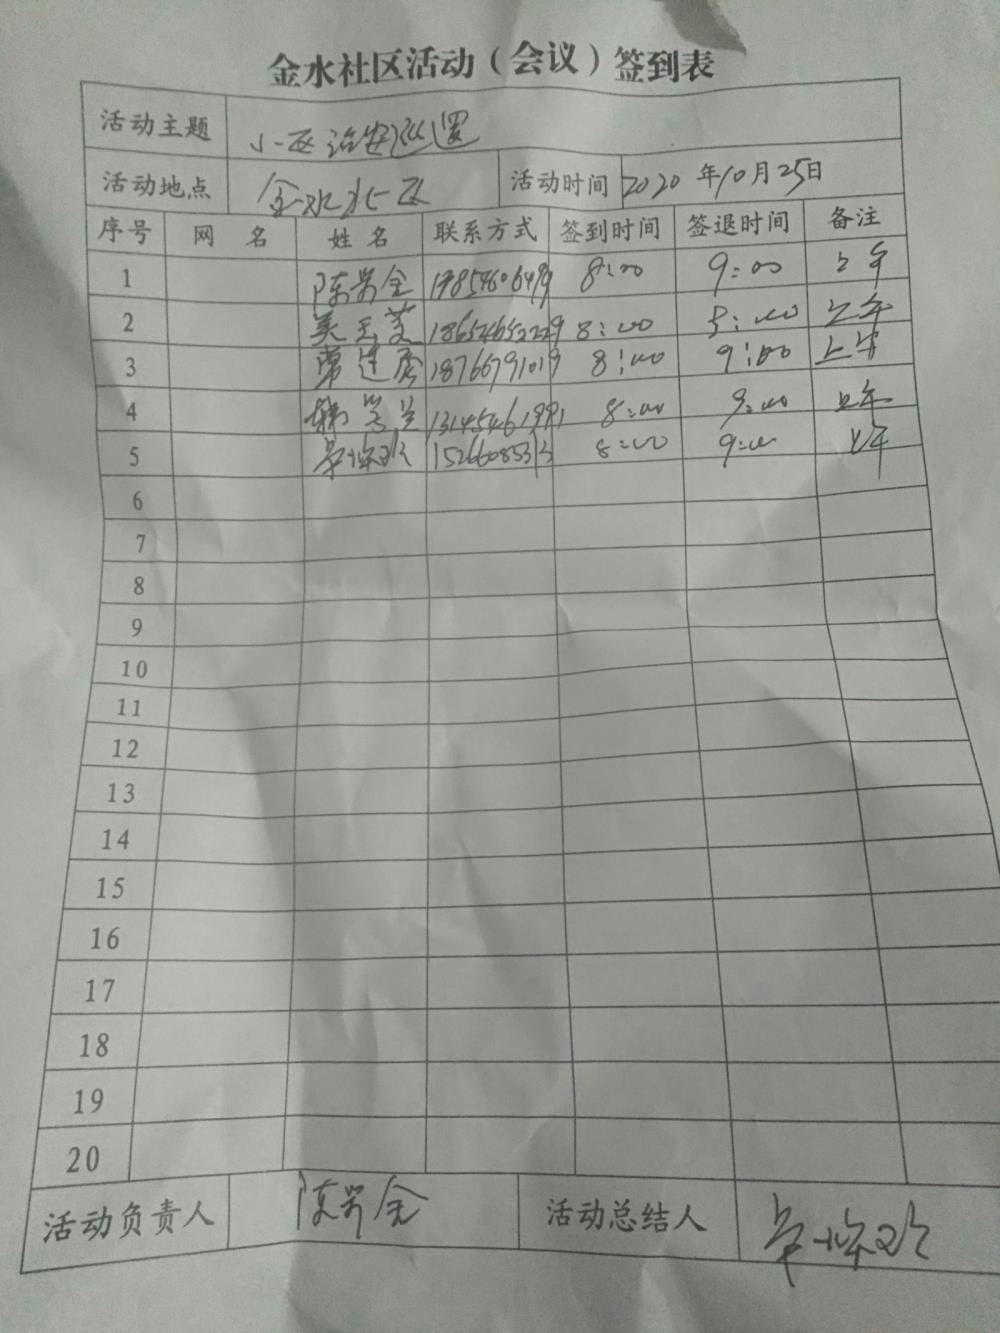 金水社区活动（会议）签到表
活动主题 小区治安巡逻
活动地点 金水小区 活动时间 2020年10月25日
序号 网 名 姓 名 联系方式 签到时间 签退时间 备注
1 陈学全 8:00 9:00 上午
2 18654653229 8:00 9:00 上午
3 18766791019 8:00 9:00 上午
4 8:00 9:00 上午
5 8:00 9:00 上午
6
7
8
9
10
11
12
13
14
15
16
17
18
19
20
活动负责人 陈学全 活动总结人